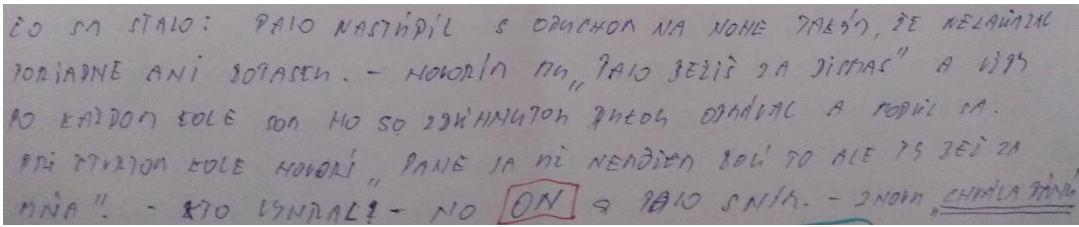 ČO SA STALO: PAĽO NASTÚPIL S OPUCHOM NA NOHE TAKÝM, ŽE NEZAVIAZAL
PORIADNE ANI BOTASKU. - HOVORÍM MU „PAĽO BEŽÍŠ ZA DISMAS" A VŽDY
PO KAŽDOM KOLE SOM HO SO ZDVIHNUTOU RUKOU A MODLIL SA.
PRI ŠTVRTOM KOLE HOVORÍ „PANE JA UŽ NEMÔŽEM BOLÍ TO ALE TY BEŽ ZA
MŇA". - KTO VYHRAL? - NO ON A PAĽO S NÍM. - ZNOVA „CHVÁLA PÁNU